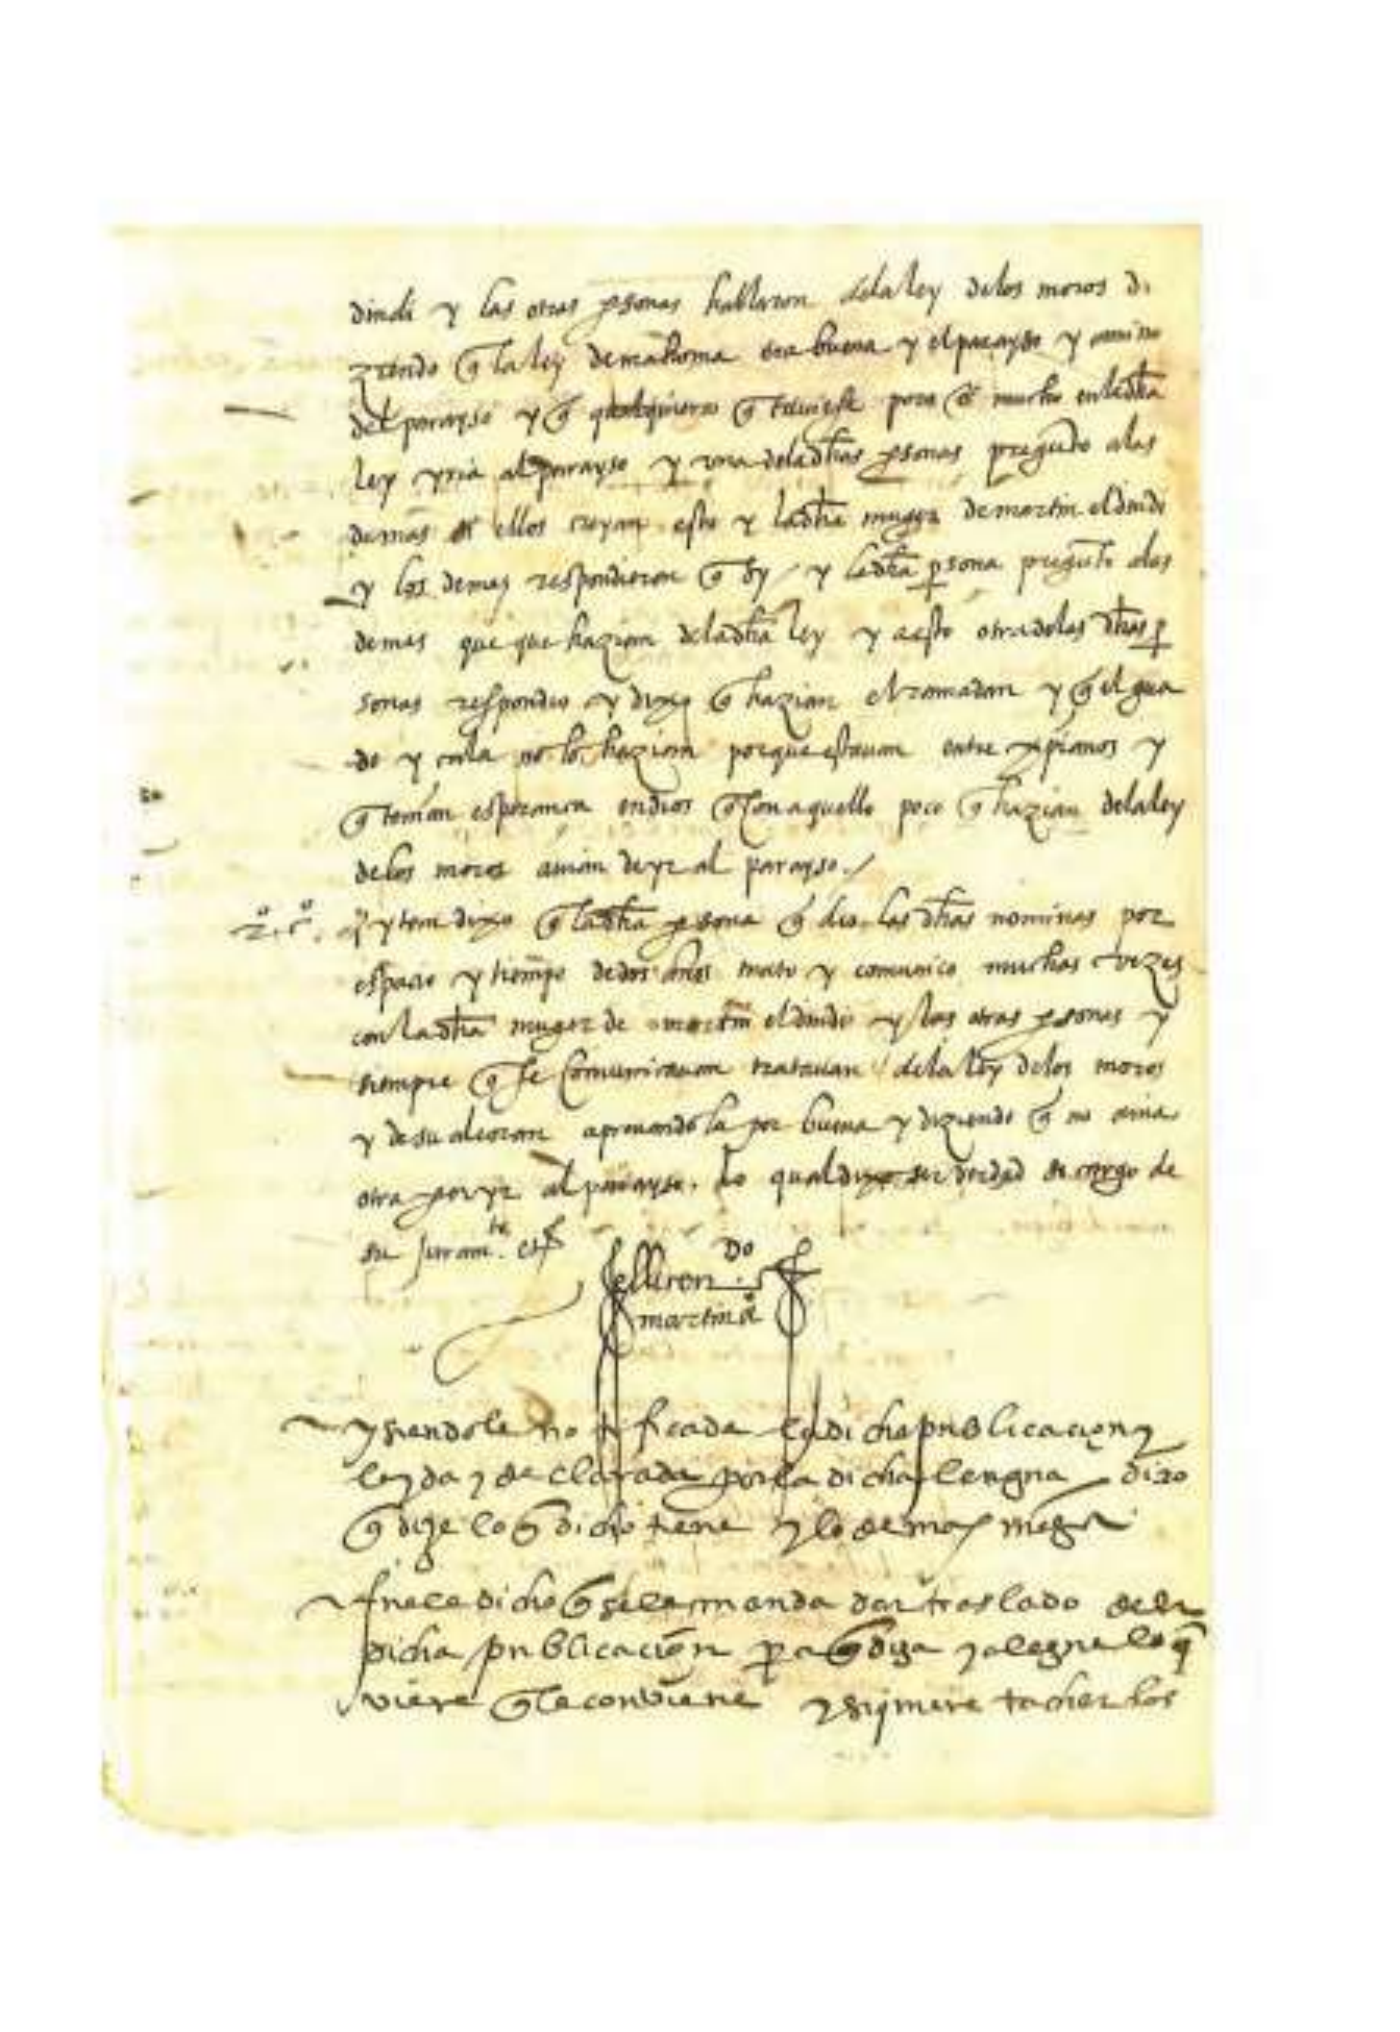 dindi y las otras psonas hablaron dela ley delos moros di
ziendo q̃ la ley de mahoma era buena y el parayso y camino
del parayso y q̃ qualquiera q̃ tuviese poco o mucho enla dha
ley yria al parayso y una delas dhas psonas pregũto alas
demas si ellos creyan esto y la dha muger de martin el dindi
y los demas respondieron q̃ sy / y la dha psona pregũto alos
demas que que hazian dela dha ley y a esto otra delas dhas p
sonas respondio y dixo q̃ hazian el ramadan y q̃ el gua
do y cala no lo hazian porque estauan entre xpianos y
q̃ tenian esperança en dios q̃ con aquello poco q̃ hazian dela ley
delos moros auian de yr al parayso /
2º. cº. yten dixo q̃ la dha psona q̃ dio las dhas nominas por
espacio y tiempo de dos años trato y comunico muchas vezes
con la dha muger de martin el dindi y las otras psonas y
siempre q̃ se comunicauan tratauan dela ley delos moros
y de su alcoran aprouandola por buena y diziendo q̃ no auia
otra para yr al parayso. Lo qual dixo ser verdad so cargo de
su juramte.
martin
y siendole notificada la dicha publicacion y
leyda y declarada por la dicha lengua dixo
q̃ dize lo q̃ dicho tiene y lo demas niega
fuele dicho q̃ se le manda dar traslado dela
dicha publicacion pa q̃ diga y alegue lo q̃
viere q̃ le conviene y si quiere tachar los